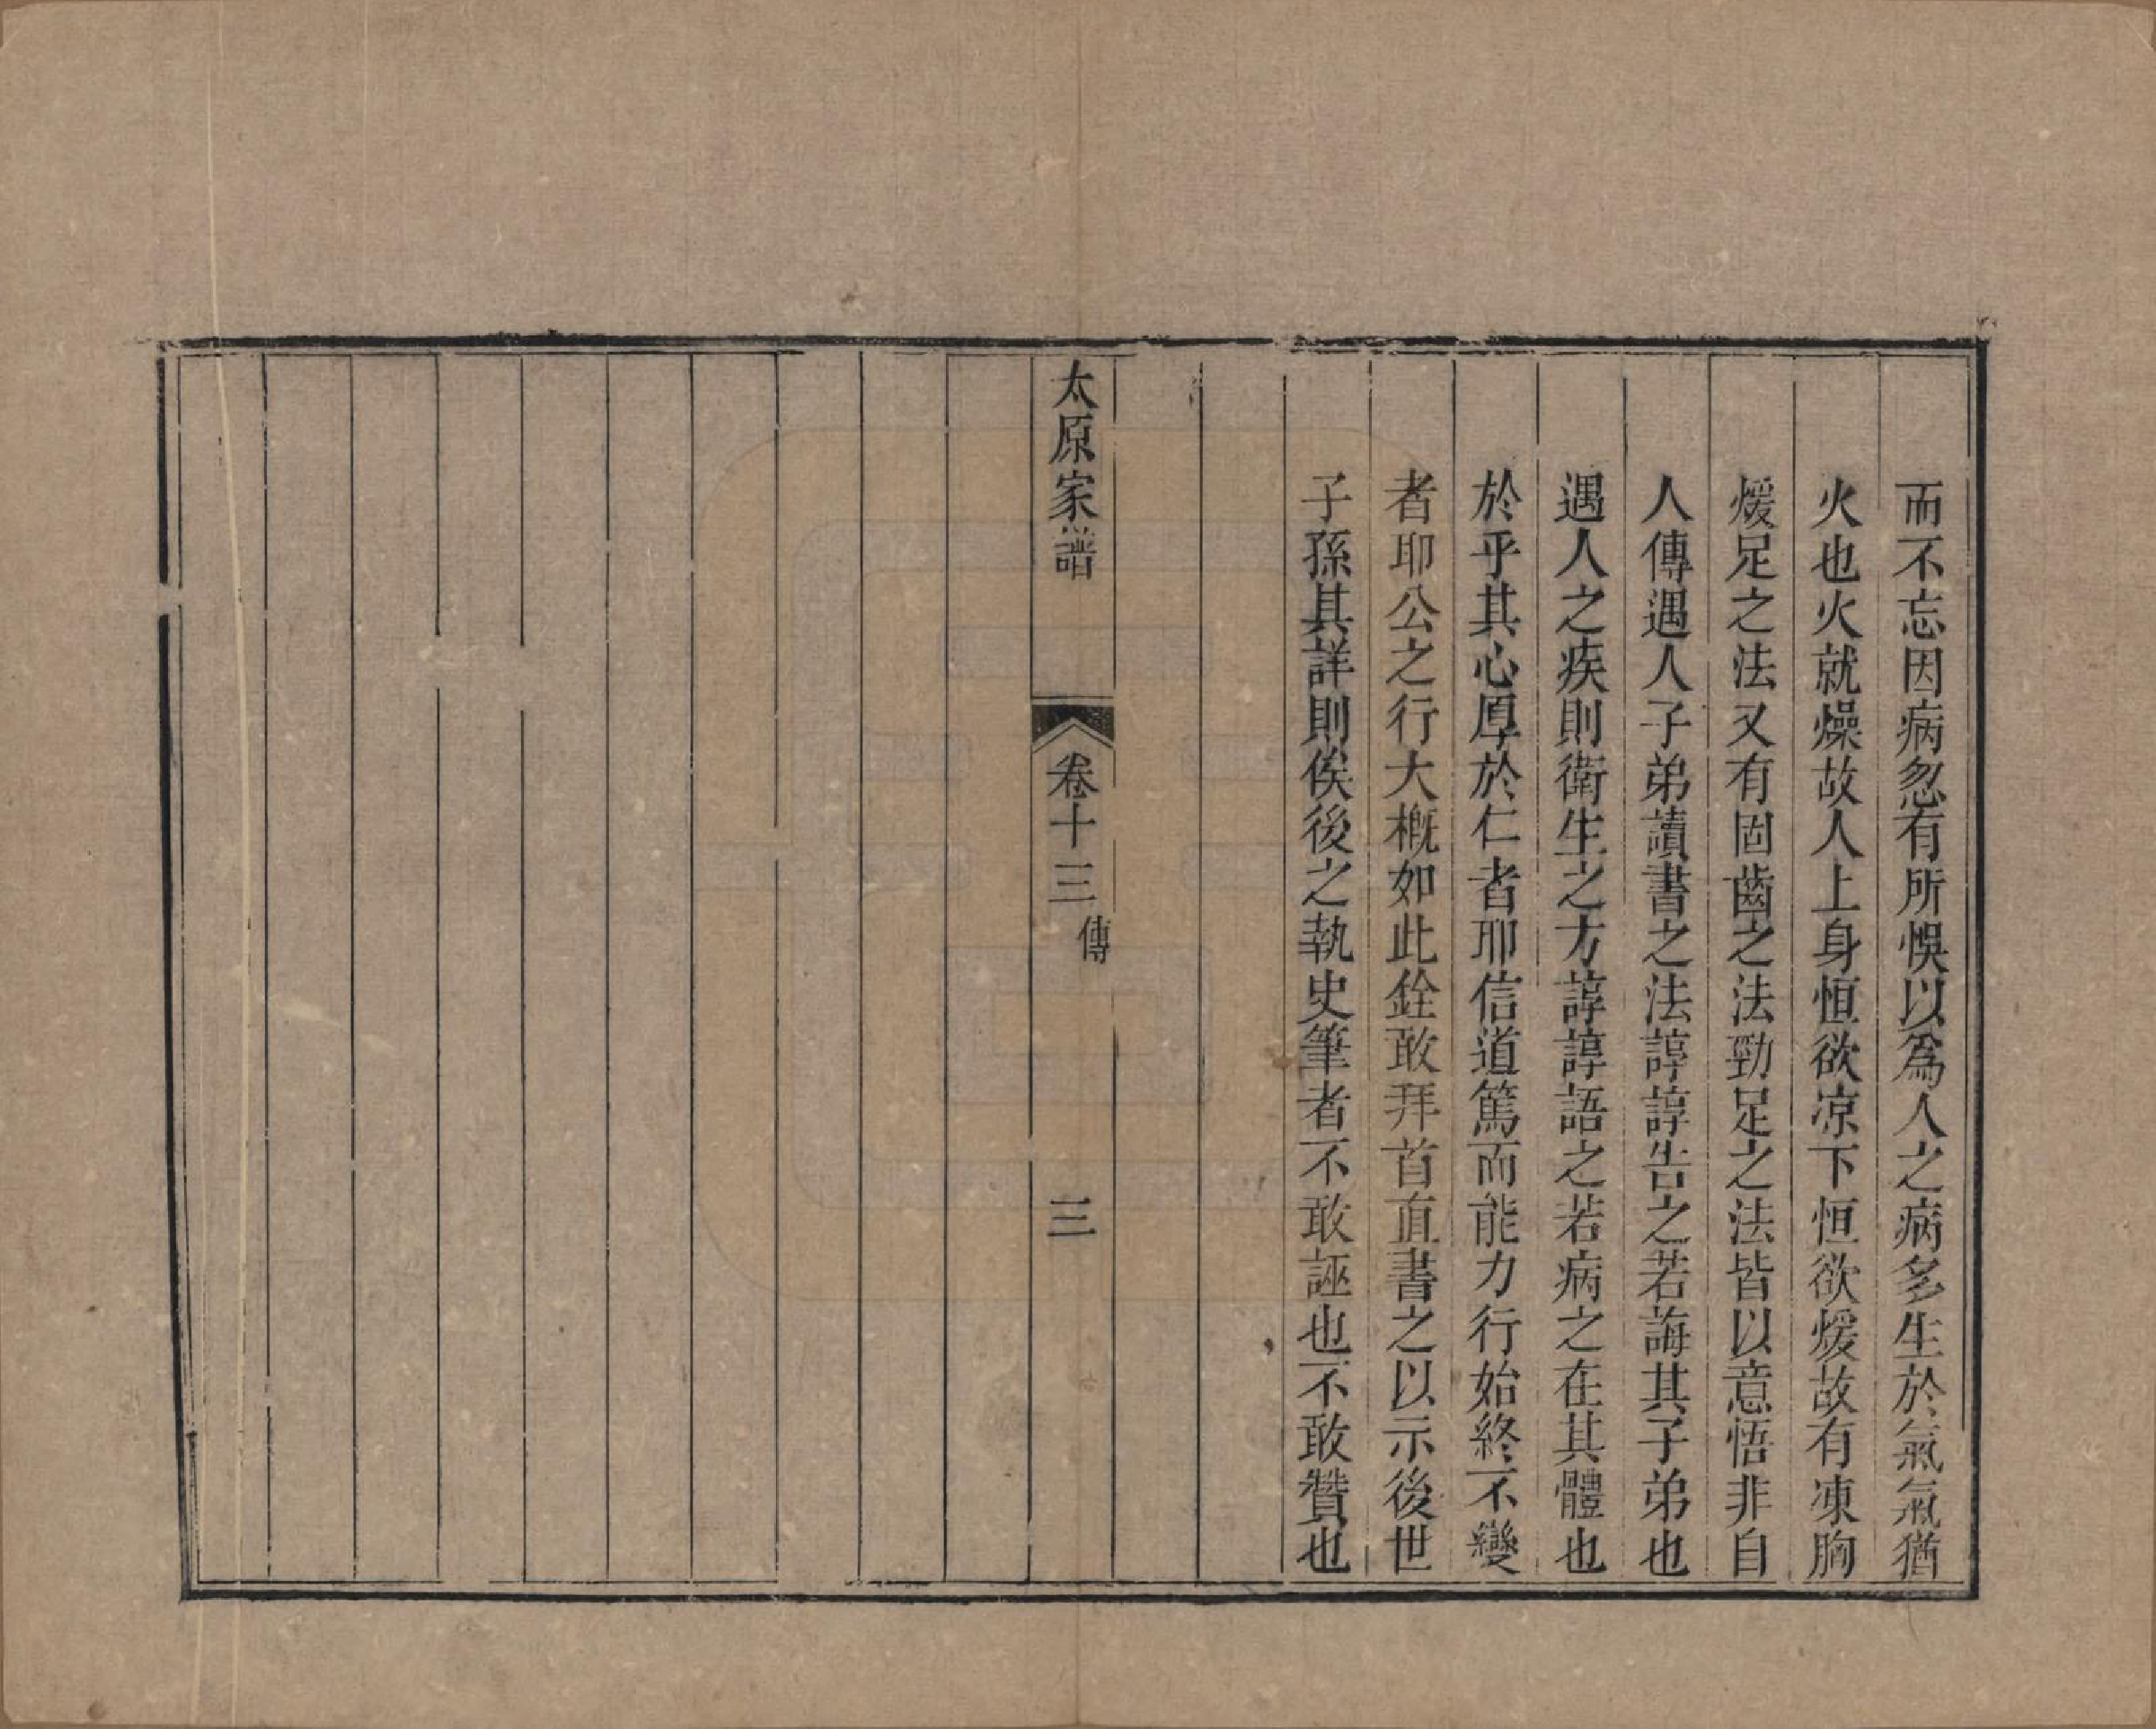 而不忘因病忽有所悞以爲人之病多生於氣氣猶
火也火就燥故人上身恒欲凉下恒欲煖故有凍胸
煖足之法又有固齒之法勁足之法皆以意悟非自
人傳遇人子弟讀書之法諄諄告之若誨其子弟也
遇人之疾則衛生之方諄諄語之若病之在其體也
於乎其心厚於仁者耶信道篤而能力行始終不變
者耶公之行大槪如此銓敢拜首直書之以示後世
子孫其詳則俟後之執史筆者不敢誣也不敢贊也
太原家譜
卷十三 傳
三